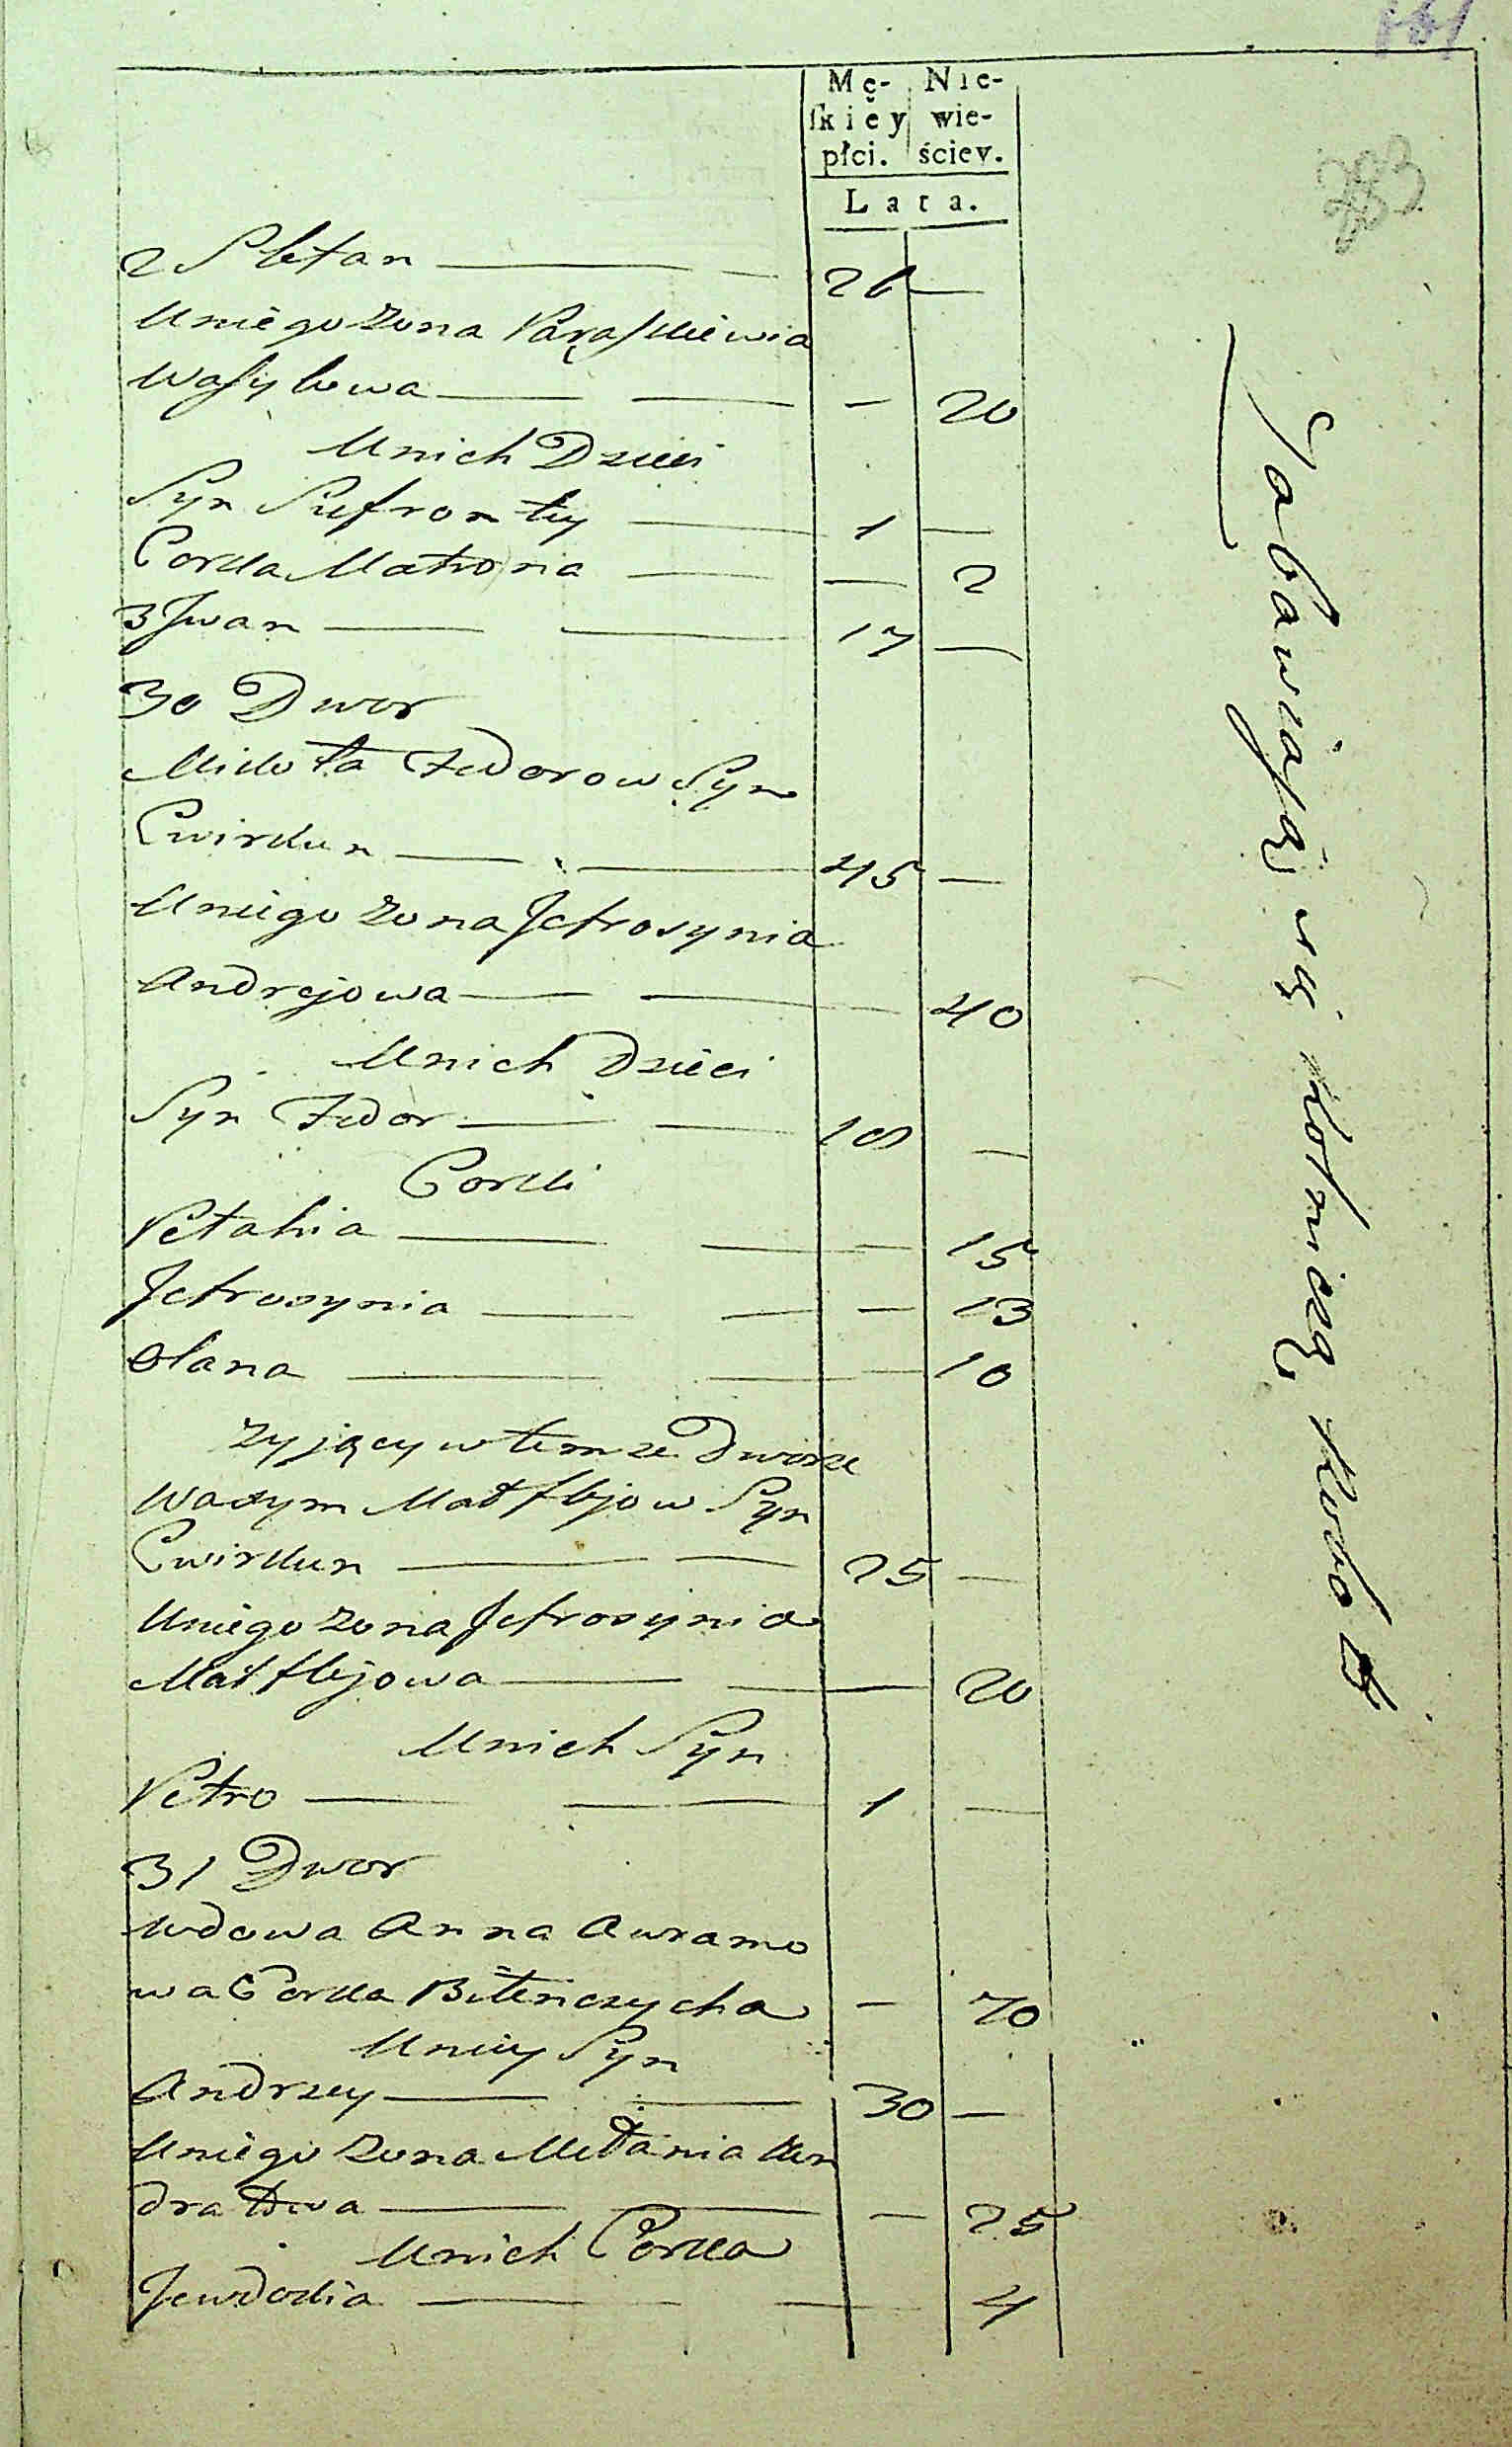 Mę- Nie-
ſkiéy wie-
płci. ściey.
Lata.
2 Stefan — 26 —
Uniego Zona Paraskiewia
Wasylowa — — 20
Unich Dzieci
Syn Sufrontiy — 1 —
Corka Matrona — — 2
3 Jwan — 17 —
30 Dwor
Mikołta Fedorow Syn
Cwirkun — 45 —
Uniego Zona Jefrosynia
Andrejowa — — 40
Unich Dzieci
Syn Fedor — 18 —
Corki
Petahia — — 15
Jefrosynia — — 13
Olana — — 10
Zyjący w temze Dworze
Wasym Matfiejow Syn
Cwirkun — 25 —
Uniego Zona Jefrosynia
Matfiejowa — — 20
Unich Syn
Petro — 1 —
31 Dwor
Wdowa Anna Awramo
wa Corka Bitenczycha — 70
Uniey Syn
Andrzey — 30 —
Uniego Zona Mełania Kon
dratowa — — 25
Unich Corka
Jewdokia — — 4
Zabawiają się Rolniczą Robotą